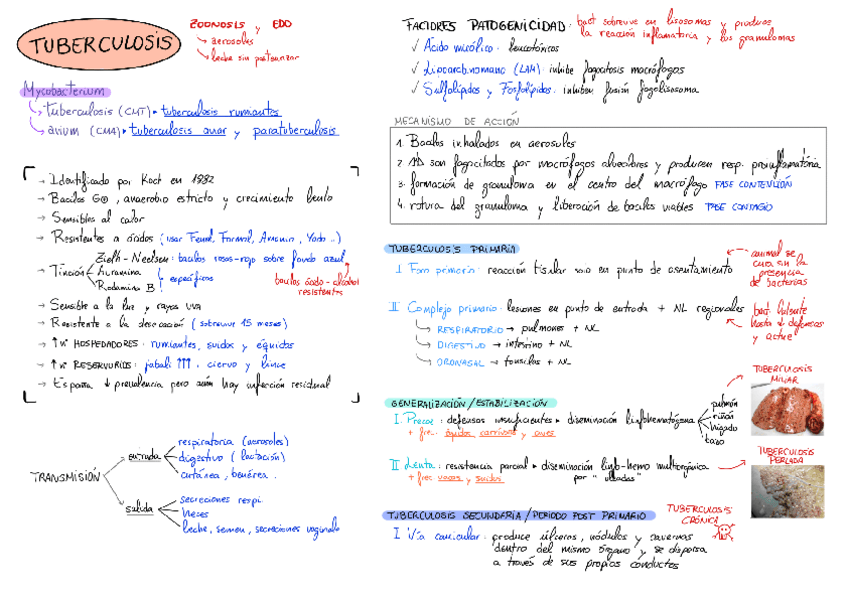 TUBERCULOSIS
ZOONOSIS y EDO
→ aerosoles
→ leche sin pasteurizar
Mycobacterium
tuberculosis (CMT) • tuberculosis rumiantes
avium (CMA) • tuberculosis aviar y paratuberculosis
→ Identificado por Koch en 1882
→ Bacilos G⊕, anaerobio estricto y crecimiento lento
→ Sensibles al calor
→ Resistentes a ácidos (usar Fenol, Formol, Amonio, Yodo ..)
→ Tinción
Ziehl-Neelsen: bacilos rosas-rojo sobre fondo azul
Auramina
Rodamina B
específicos
bacilos ácido-alcohol resistentes
→ Sensible a la luz y rayos uva
→ Resistente a la desecación (sobrevive 15 meses)
→ ↑ nº HOSPEDADORES: rumiantes, suidos y équidos
→ ↑ nº RESERVORIOS: jabalí ↑↑↑, ciervo y lince
→ España ↓ prevalencia pero aún hay infección residual
TRANSMISIÓN
entrada
respiratoria (aerosoles)
digestivo (lactación)
cutánea, venérea.
salida
secreciones respi.
heces
leche, semen, secreciones vaginales
FACTORES PATOGENICIDAD: bact sobrevive en lisosomas y produce
la reacción inflamatoria y los granulomas
✓ Ácido micólico: leucotóxicos
✓ Lipoarabinomano (LAM): inhibe fagocitosis macrófagos
✓ Sulfolípidos y Fosfolípidos: inhiben fusión fagolisosoma
MECANISMO DE ACCIÓN
1. Bacilos inhalados en aerosoles
2. son fagocitados por macrófagos alveolares y producen resp. proinflamatoria
3. formación de granuloma en el centro del macrófago FASE CONTENCIÓN
4. rotura del granuloma y liberación de bacilos viables FASE CONTAGIO
TUBERCULOSIS PRIMARIA
I Foco primario: reacción tisular solo en punto de asentamiento
animal se
cura sin la
presencia
de bacterias
II Complejo primario: lesiones en punto de entrada + NL regionales
bact latente
hasta ↓ defensas
y active
RESPIRATORIO → pulmones + NL
DIGESTIVO → intestino + NL
ORONASAL → tonsilas + NL
GENERALIZACIÓN/ESTABILIZACIÓN
I. Precoz: defensas insuficientes • diseminación linfohematógena
+ frec: équidos, carnívoros y aves
pulmón
riñón
hígado
bazo
TUBERCULOSIS
MILIAR
II. Lenta: resistencia parcial • diseminación linfo-hemo multiorgánica
+ frec: vacas y suidos
por "oleadas"
TUBERCULOSIS
PERLADA
TUBERCULOSIS SECUNDARIA/PERIODO POST PRIMARIO
TUBERCULOSIS
CRÓNICA
I Vía canicular: produce úlceras, nódulos y cavernas
dentro del mismo órgano y se dispersa
a través de sus propios conductos